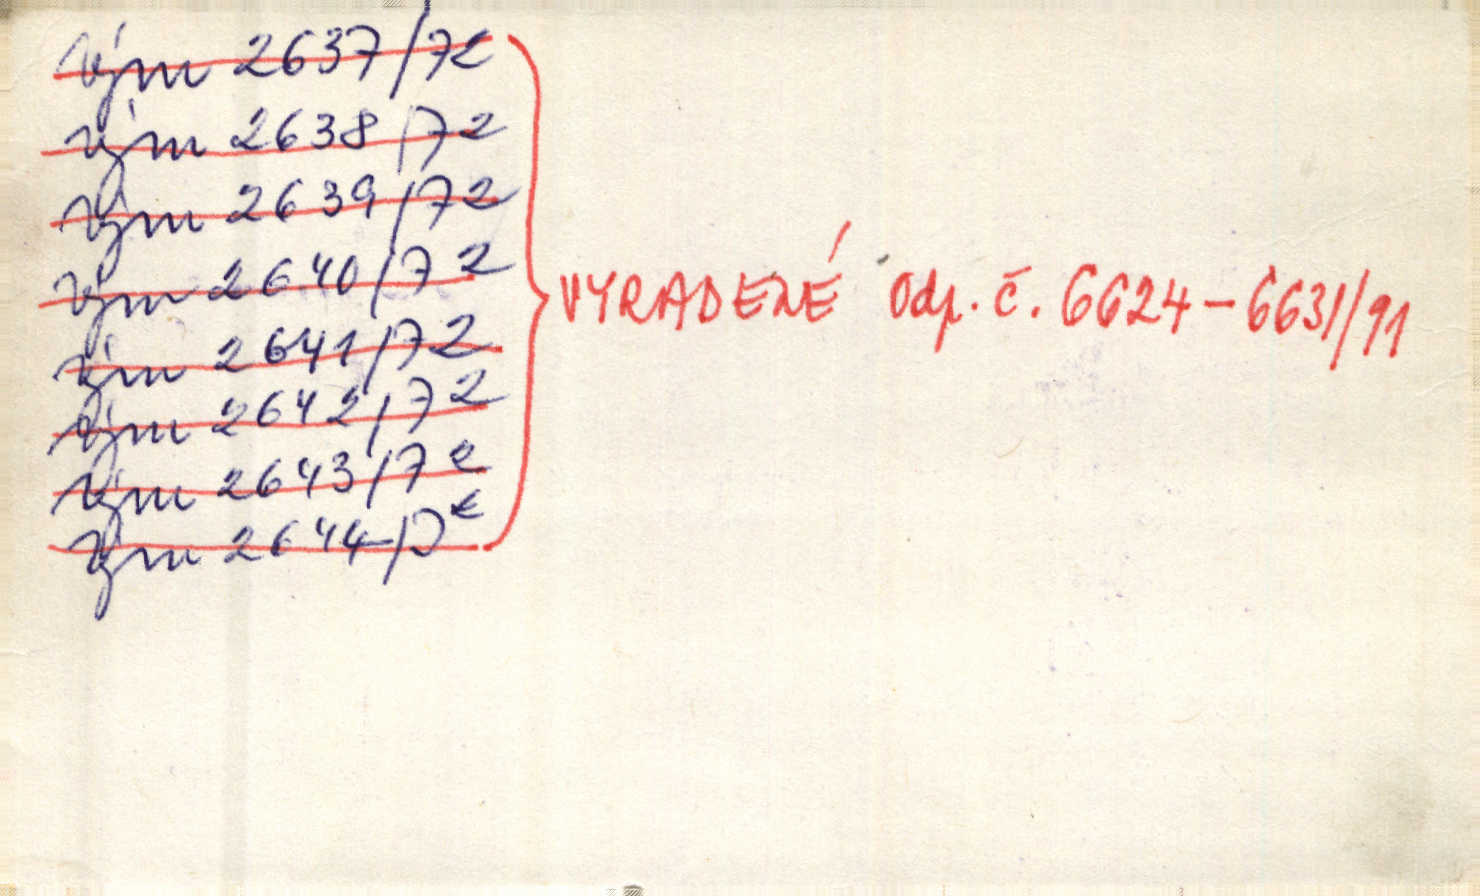 vým 2637/72
vým 2638/72
vým 2639/72
vým 2640/72
vým 2641/72
vým 2642/72
vým 2643/72
vým 2644/72
VYRADENÉ Odp. č. 6624-6631/91